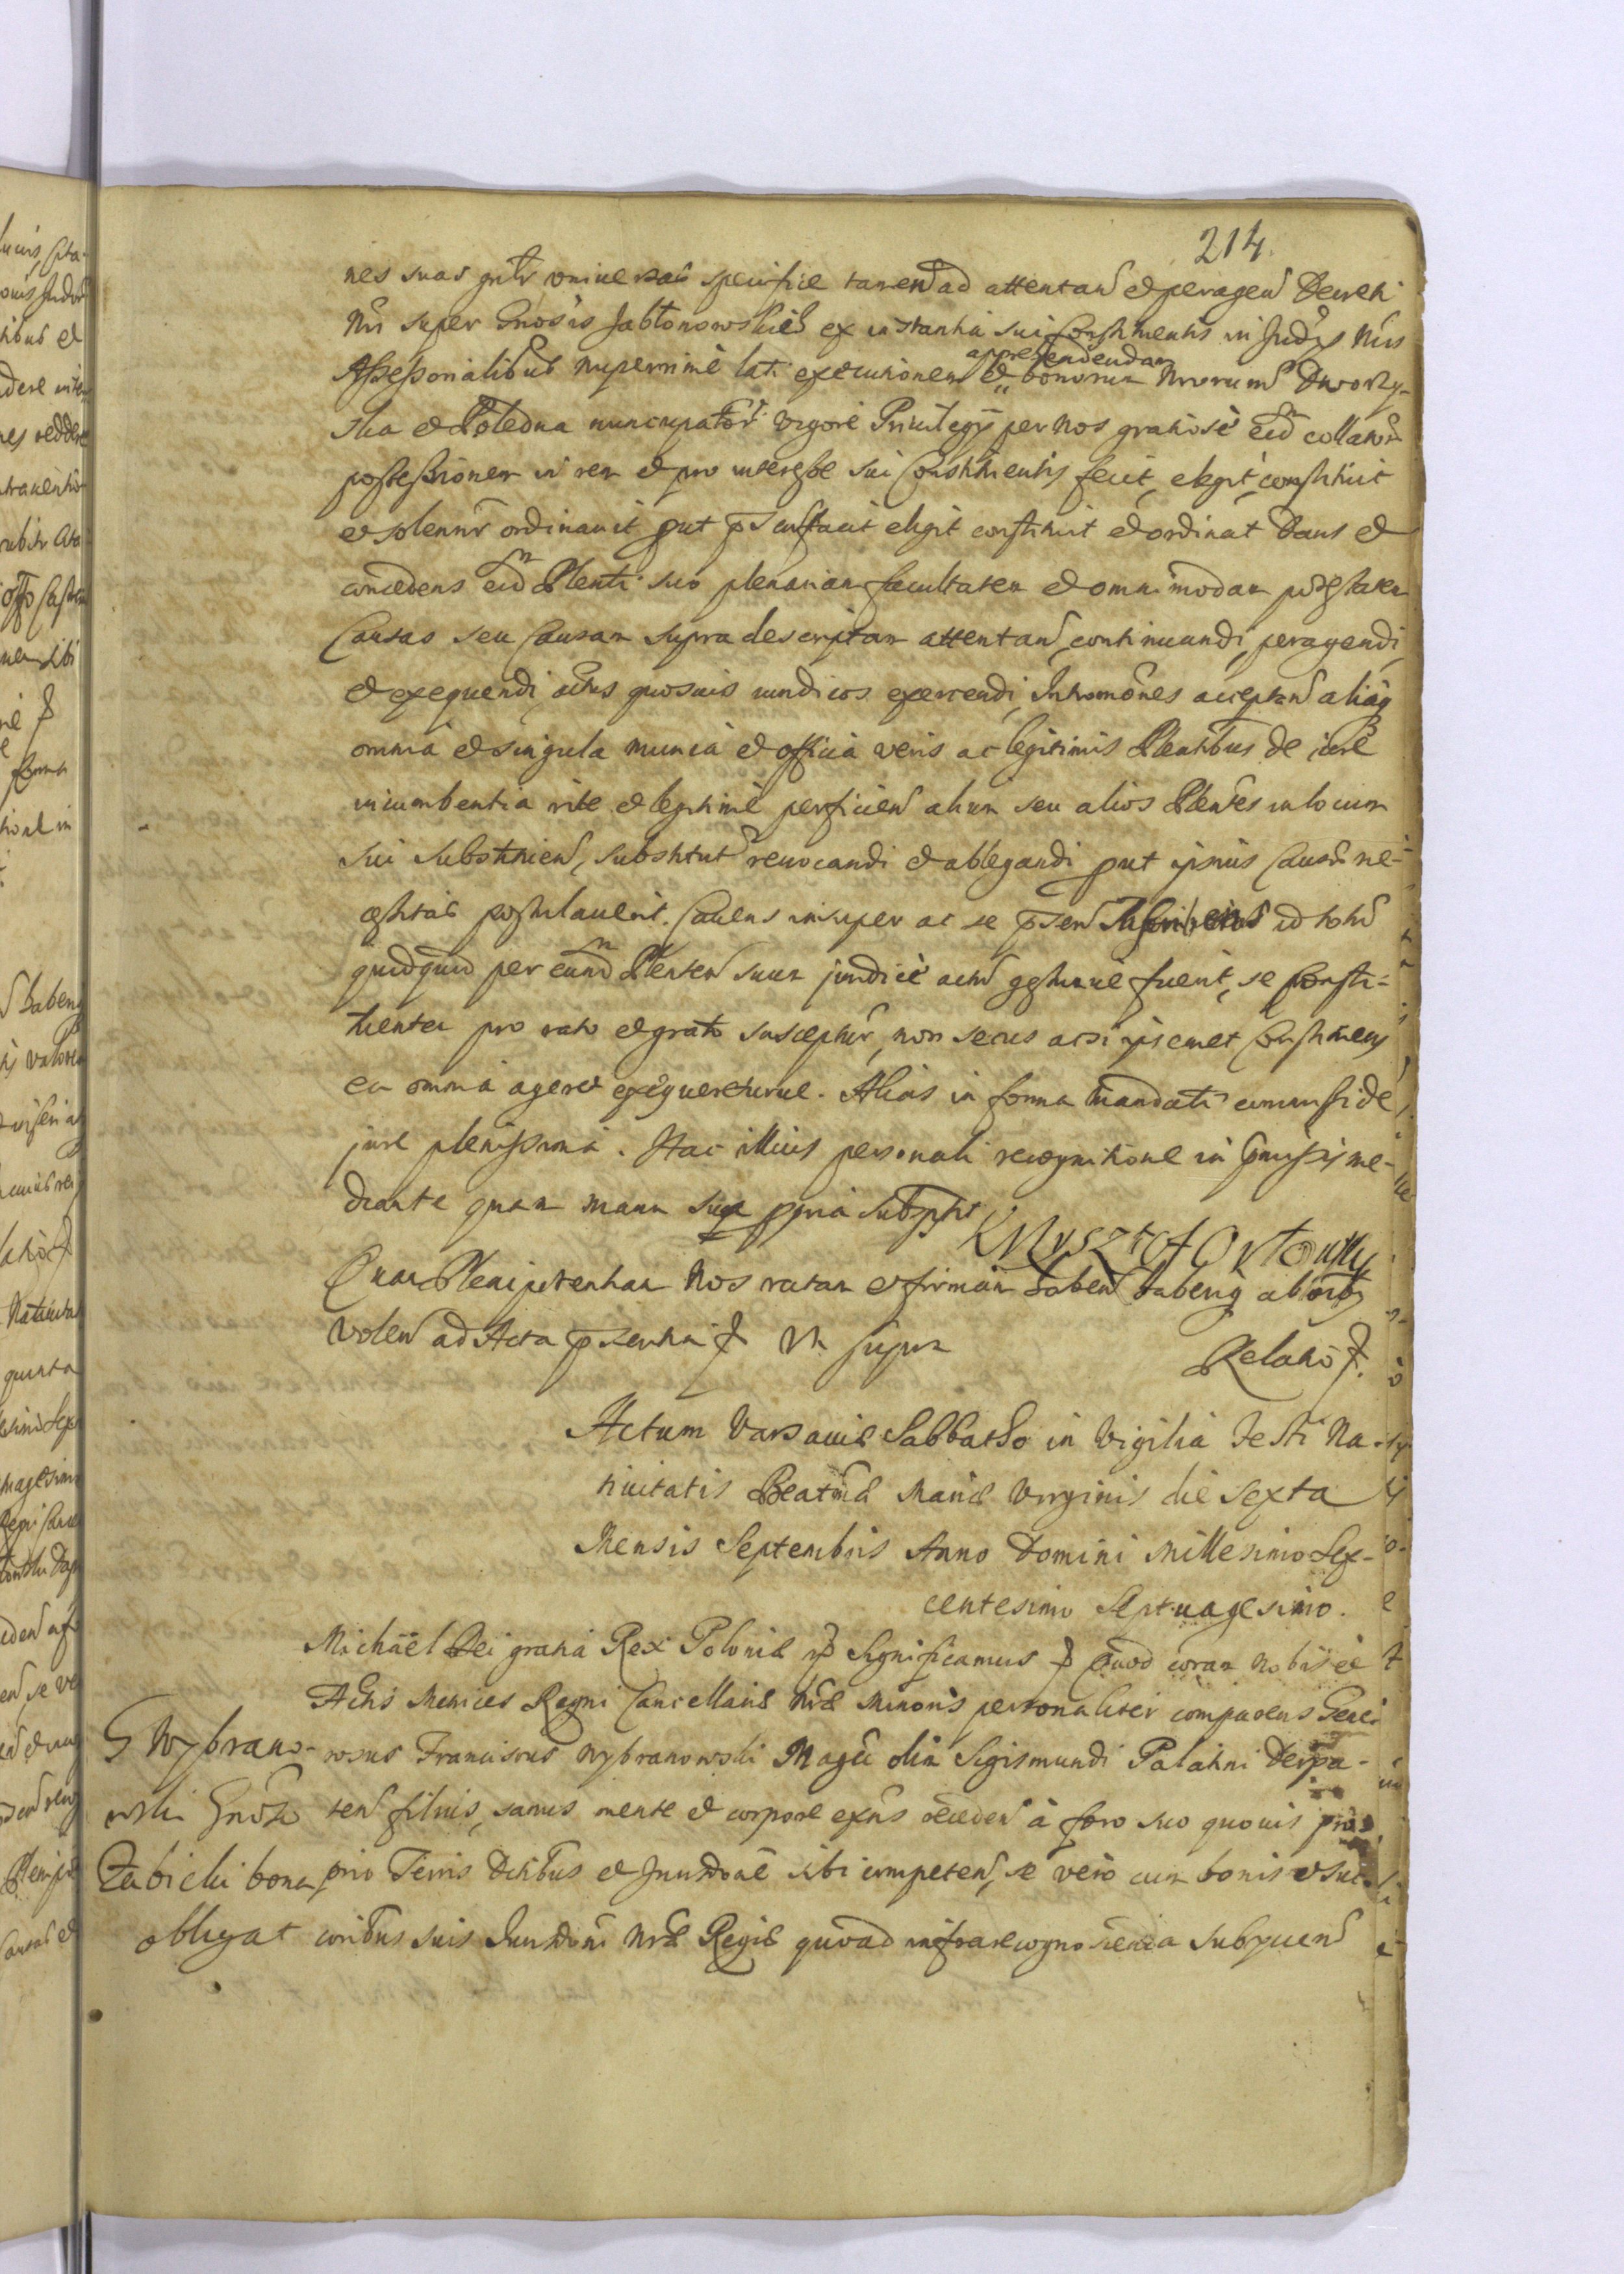 214.
nes suas gnlr vniversas specifice tamen ad attentand et peragend Decreti
Nri super Gnosis Jabłonowskie ex instantia sui Constituentis in Judys Nris
Assessorialibus nuperrime lati executionem et apprehendendam bonorum Nrorum Dworzy-
ska et Poledna nuncupator vigore Priuilegij per Nos gratiose eidm collator
possessionem in rem et pro interesse sui Constituentis fecit, elegit, constituit
et solennr ordinauit put psentib facit eligit constituit et ordinat Dans et
concedens eidm Plenti suo plenariam facultatem et omnimodam potestatem
Causas seu Causam supra descriptam attentand, continuandi, peragendi,
et exequendi, actus quosuis iuridicos exercendi, Intromones acceptand aliaq
omnia et singula munia et officia veris ac legitimis Plentibus de iure
incumbentia rite et legitime perficiend alium seu alios Plentes in locum
sui substituend, substitut reuocandi et ablegandi put ipsius Causae ne-
cessitas postulauerit. Cauens insuper ac se psen id totu
quidquid per eund Plentem suum juridice actu gestumue fuerit, se Consti-
tuentem pro rato et grato suscepturu, non secus acsi ipsemet Constituens
ea omnia ageret exequereturue. Alias in forma Mandati communi de
jure plenissima. Hac illius personali recognitione in praemissis me-
diante quam manu sua ppria subscripsit
Krysztof
Quam Plenipotentiam Nos ratam et firmam haben haberiq ab oibus
volen ad Acta psentia ꝑ Vt supra
Relatio ꝑ.
Actum Varsauiae Sabbatho in Vigilia Festi Na-
tiuitatis Beatmae Mariae Virginis die sexta
Mensis Septembris Anno Domini Millesimo Sex-
centesimo Septuagesimo.
Michaël Dei gratia Rex Poloniae ꝑ Significamus ꝑ Quod coram Nobis et
Actis Metrices Regni Cancellariae Nrae Minoris personaliter comparens Gene-
rosus Franciscus Wybranowski Magci olim Sigismundi Palatini Derpa-
ten filius, sanus mente et corpore exns receden à foro suo quouis pro-
prio Terris Dctibus et Jurisdone sibi competen, se vero cum bonis et suc-
coribus suis Jurisdoni Nrae Regiae quoad infra recognoscenda subycien
G Wybrano-
wski Gnoso
Zabicki bona
obligat